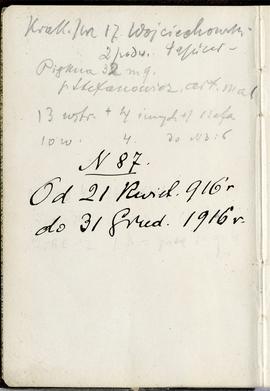 Krak. Prz 17 Wojciechowski
2 podw.
Piękna 32 m 9.
p Stefanowicz art. mal
13 wstr. + 4 innych
10 w. 4. do N 3: 6
N 87.
Od 21 Kwiet. 916 r
do 31 Grud. 1916 r.